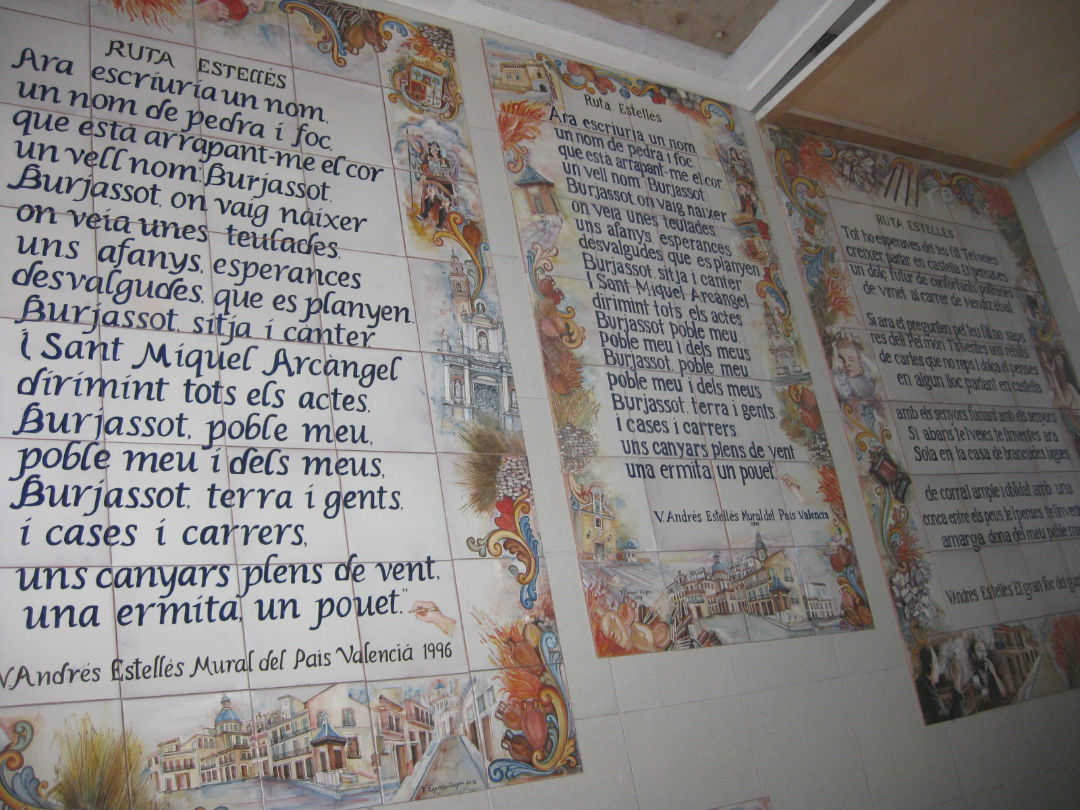 RUTA ESTELLÉS
Ara escriuria un nom,
un nom de pedra i foc
que està arrapant-me el cor
un vell nom: Burjassot.
Burjassot, on vaig naixer
on veia unes teulades,
uns afanys, esperances
desvalgudes, que es planyen.
Burjassot, sitja i canter
i Sant Miquel Arcàngel
dirimint tots els actes.
Burjassot, poble meu,
poble meu i dels meus,
Burjassot, terra i gents,
i cases i carrers,
uns canyars plens de vent,
una ermita, un pouet."
V. Andrés Estellés Mural del Pais Valencià 1996
Ruta Estellés
Ara escriuria un nom
un nom de pedra i foc
que està arrapant-me el cor
un vell nom Burjassot
Burjassot on vaig naixer
on veia unes teulades
uns afanys, esperances
desvalgudes, que es planyen
Burjassot, sitja i canter
i Sant Miquel Arcàngel
dirimint tots els actes
Burjassot poble meu
poble meu i dels meus
Burjassot, poble meu
poble meu i dels meus
Burjassot, terra i gents
i cases i carrers
uns canyars plens de vent
una ermita, un pouet.
V. Andrés Estellés Mural del País Valencià
RUTA ESTELLÉS
Tot ho esperaves del teu fill Tel veies
creixer parlar en castella El pensaves
un dolç futur de confortables poltrones
de vimet, al carrer de
Si ara et pregunten pel teu fill no saps
res dell Pel món T'inventes uns
de cartes que no reps i dolça el penses
en algun lloc parlant en castellà
amb els senyors fumant amb els senyors
Si abans te'l veies te'l inventes ara
Sola en la casa de
de corral ample i oblidat amb una
conca entre els peus, te'l penses, te'l
amarga, dona del meu poble
V. Andrés Estellés El gran foc dels